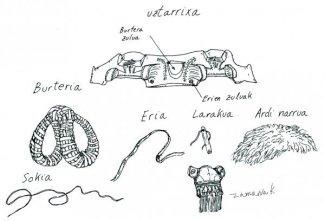 uztarrixa
Burtera
zulua
Erien zuluak
Burteria
Eria
Larakua
Ardi narrua
Sokia
zamarrak